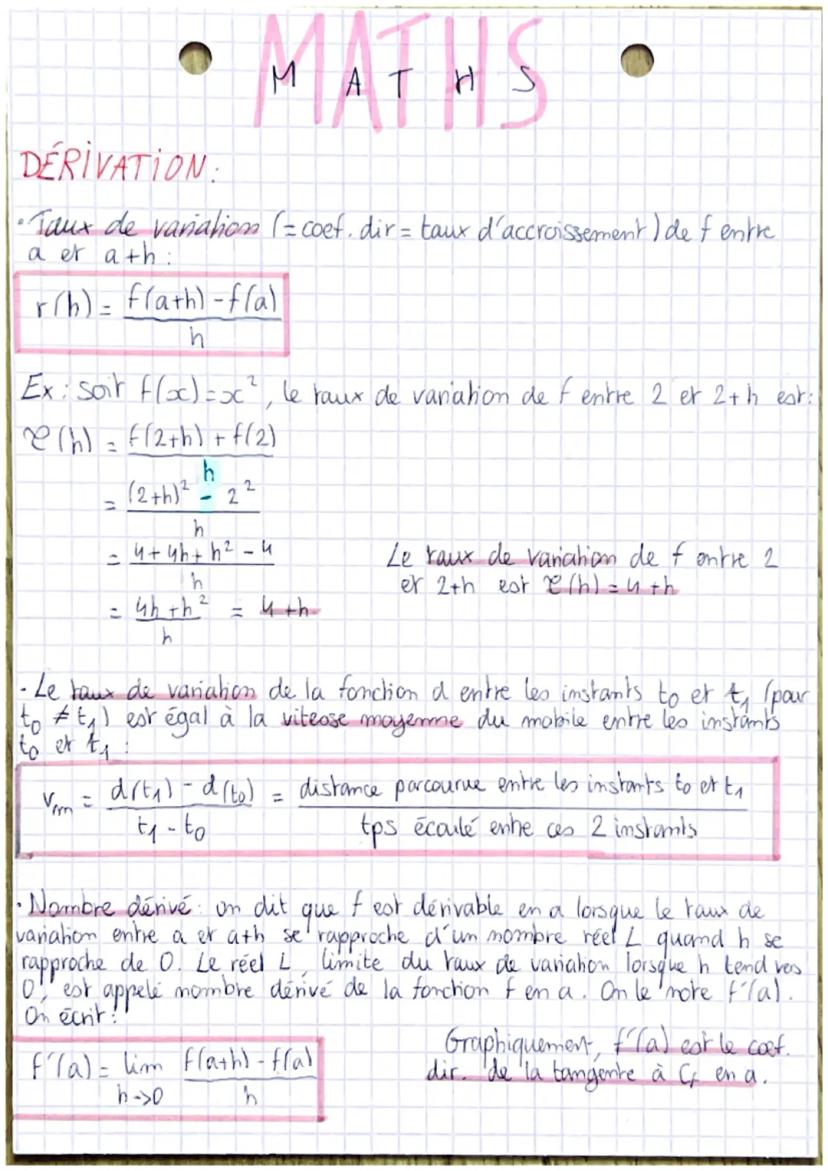 MATHS
M A T H S
DÉRIVATION:
• Taux de variation (= coef. dir = taux d'accroissement) de f entre
a et a+h :
r(h) = f(a+h) - f(a)
h
Ex : soit f(x) = x², le taux de variation de f entre 2 et 2+h est :
τ(h) = f(2+h) + f(2)
h
= (2+h)² - 2²
h
= 4 + 4h + h² - 4
h
Le taux de variation de f entre 2
et 2+h est τ(h) = 4+h
= 4h + h² = 4+h
h
- Le taux de variation de la fonction d entre les instants t₀ et t₁ (pour
t₀ ≠ t₁) est égal à la vitesse moyenne du mobile entre les instants
t₀ et t₁ :
Vm = d(t₁) - d(t₀) = distance parcourue entre les instants t₀ et t₁
t₁ - t₀ tps écoulé entre ces 2 instants
• Nombre dérivé : on dit que f est dérivable en a lorsque le taux de
variation entre a et a+h se rapproche d'un nombre réel L quand h se
rapproche de 0. Le réel L, limite du taux de variation lorsque h tend vers
0, est appelé nombre dérivé de la fonction f en a. On le note f'(a).
On écrit :
f'(a) = lim f(a+h) - f(a)
h->0 h
Graphiquement, f'(a) est le coef.
dir. de la tangente à Cf en a.